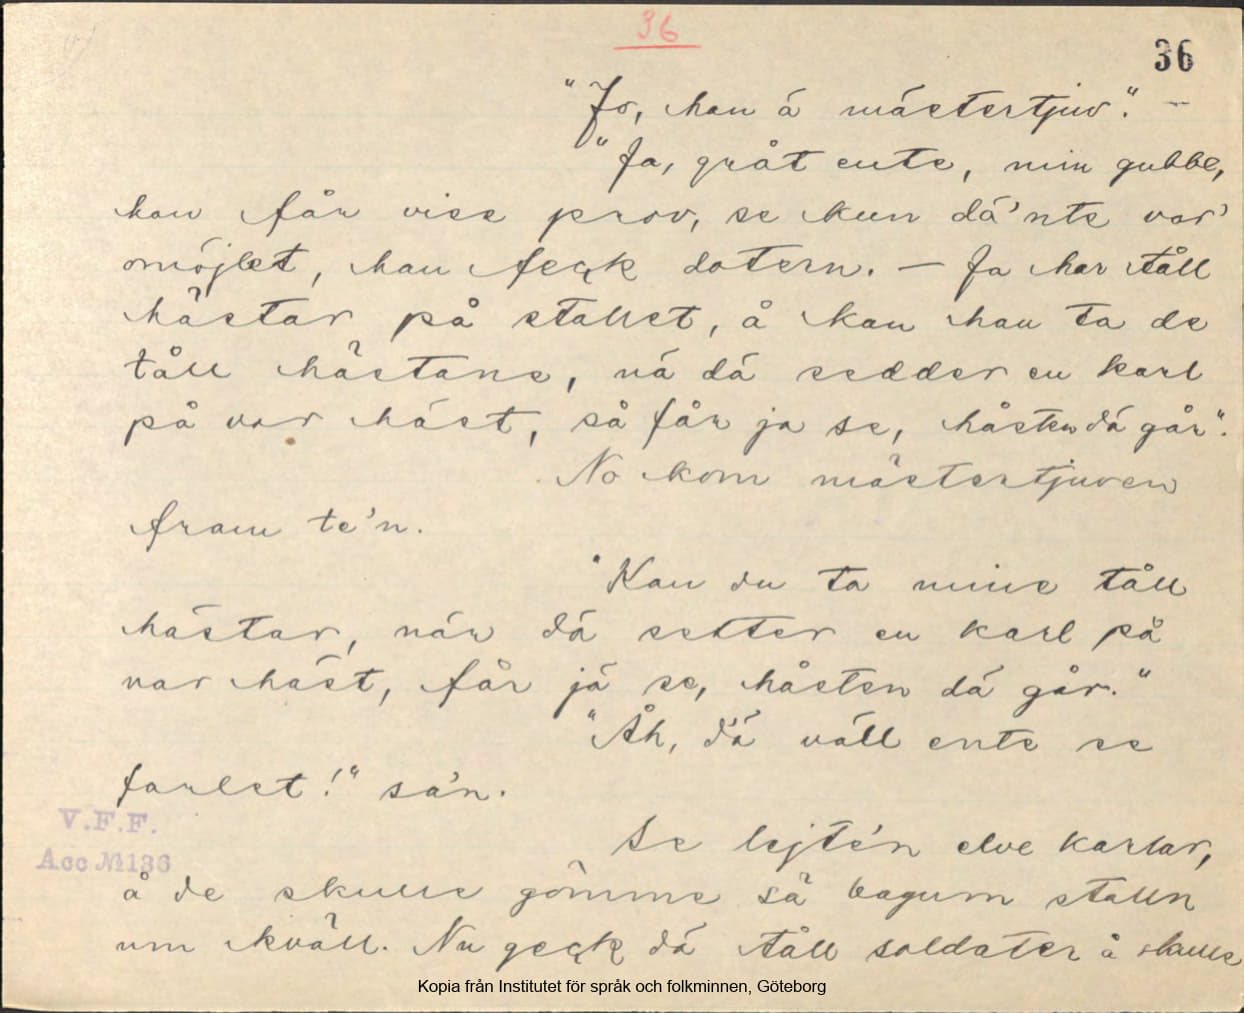 36
36
"Jo, han á mästertjuv."
"Ja, gråt ente, min gubbe,
han får vise prov, se kun dä'nte var'
omöjlet, han feck dotern. — Ja har tåll
hästar på stallet, å kan han ta de
tåll hästane, nä dä sedder en karl
på var häst, så får ja se, håsten dä går".
No kom mästertjuven
fram te'n.
"Kan du ta mine tåll
hästar, när dä setter en karl på
var häst, får jä se, håsten dä går."
"Åh, dä väll ente se
farlet!" sa'n.
Se lejte'n elve karlar,
å de skulle gömme sä bagum stalln
um kväll. Nu geck dä tåll soldater å skulle
V.F.F.
Acc № 136
Kopia från Institutet för språk och folkminnen, Göteborg